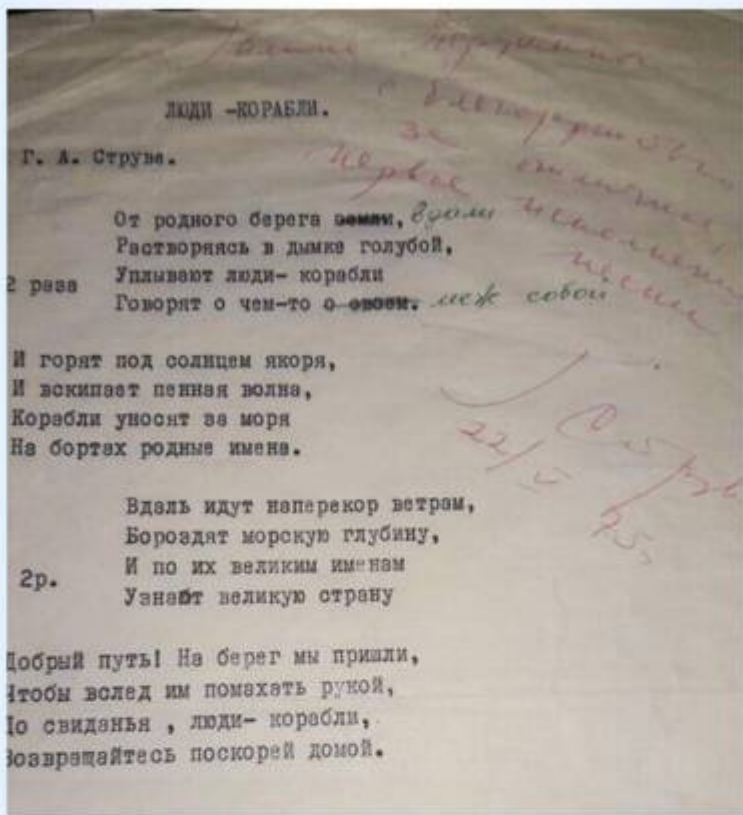 с благодарностью
за отличное
первое исполнение
песни
ЛЮДИ -КОРАБЛИ.
Г. А. Струве.
От родного берега земли, вдали
Растворяясь в дымке голубой,
2 раза Уплывают люди- корабли
Говорят о чем-то о своем. меж собой
И горят под солнцем якоря,
И вскипает пенная волна,
Корабли уносят за моря
На бортах родные имена.
Вдаль идут наперекор ветрам,
Бороздят морскую глубину,
2р. И по их великим именам
Узнают великую страну
Добрый путь! На берег мы пришли,
Чтобы вслед им помахать рукой,
До свиданья , люди- корабли,
Возвращайтесь поскорей домой.
Струве
22/V 75.